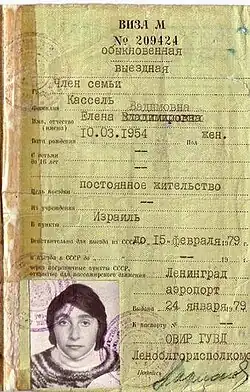 ВИЗА М
№ 209424
обыкновенная
выездная
Член семьи
Кассель
Фамилия Вадимовна
Имя, отчество Елена Владимировна
(имена)
10.03.1954 жен.
Дата рождения Пол
С детьми --
до 16 лет
--
постоянное жительство
Цель поездки
Из учреждения --
Израиль
В пункты
Действительна для выезда из СССР до 15-февраля.79 г.
и въезда в СССР до -- 19 г.
через пограничные пункты СССР, Ленинград
открытые для пассажирского движения
аэропорт
Выдана 24 января.79
К паспорту № --
ОВИР ГУВД
Леноблгорисполкома
Подпись